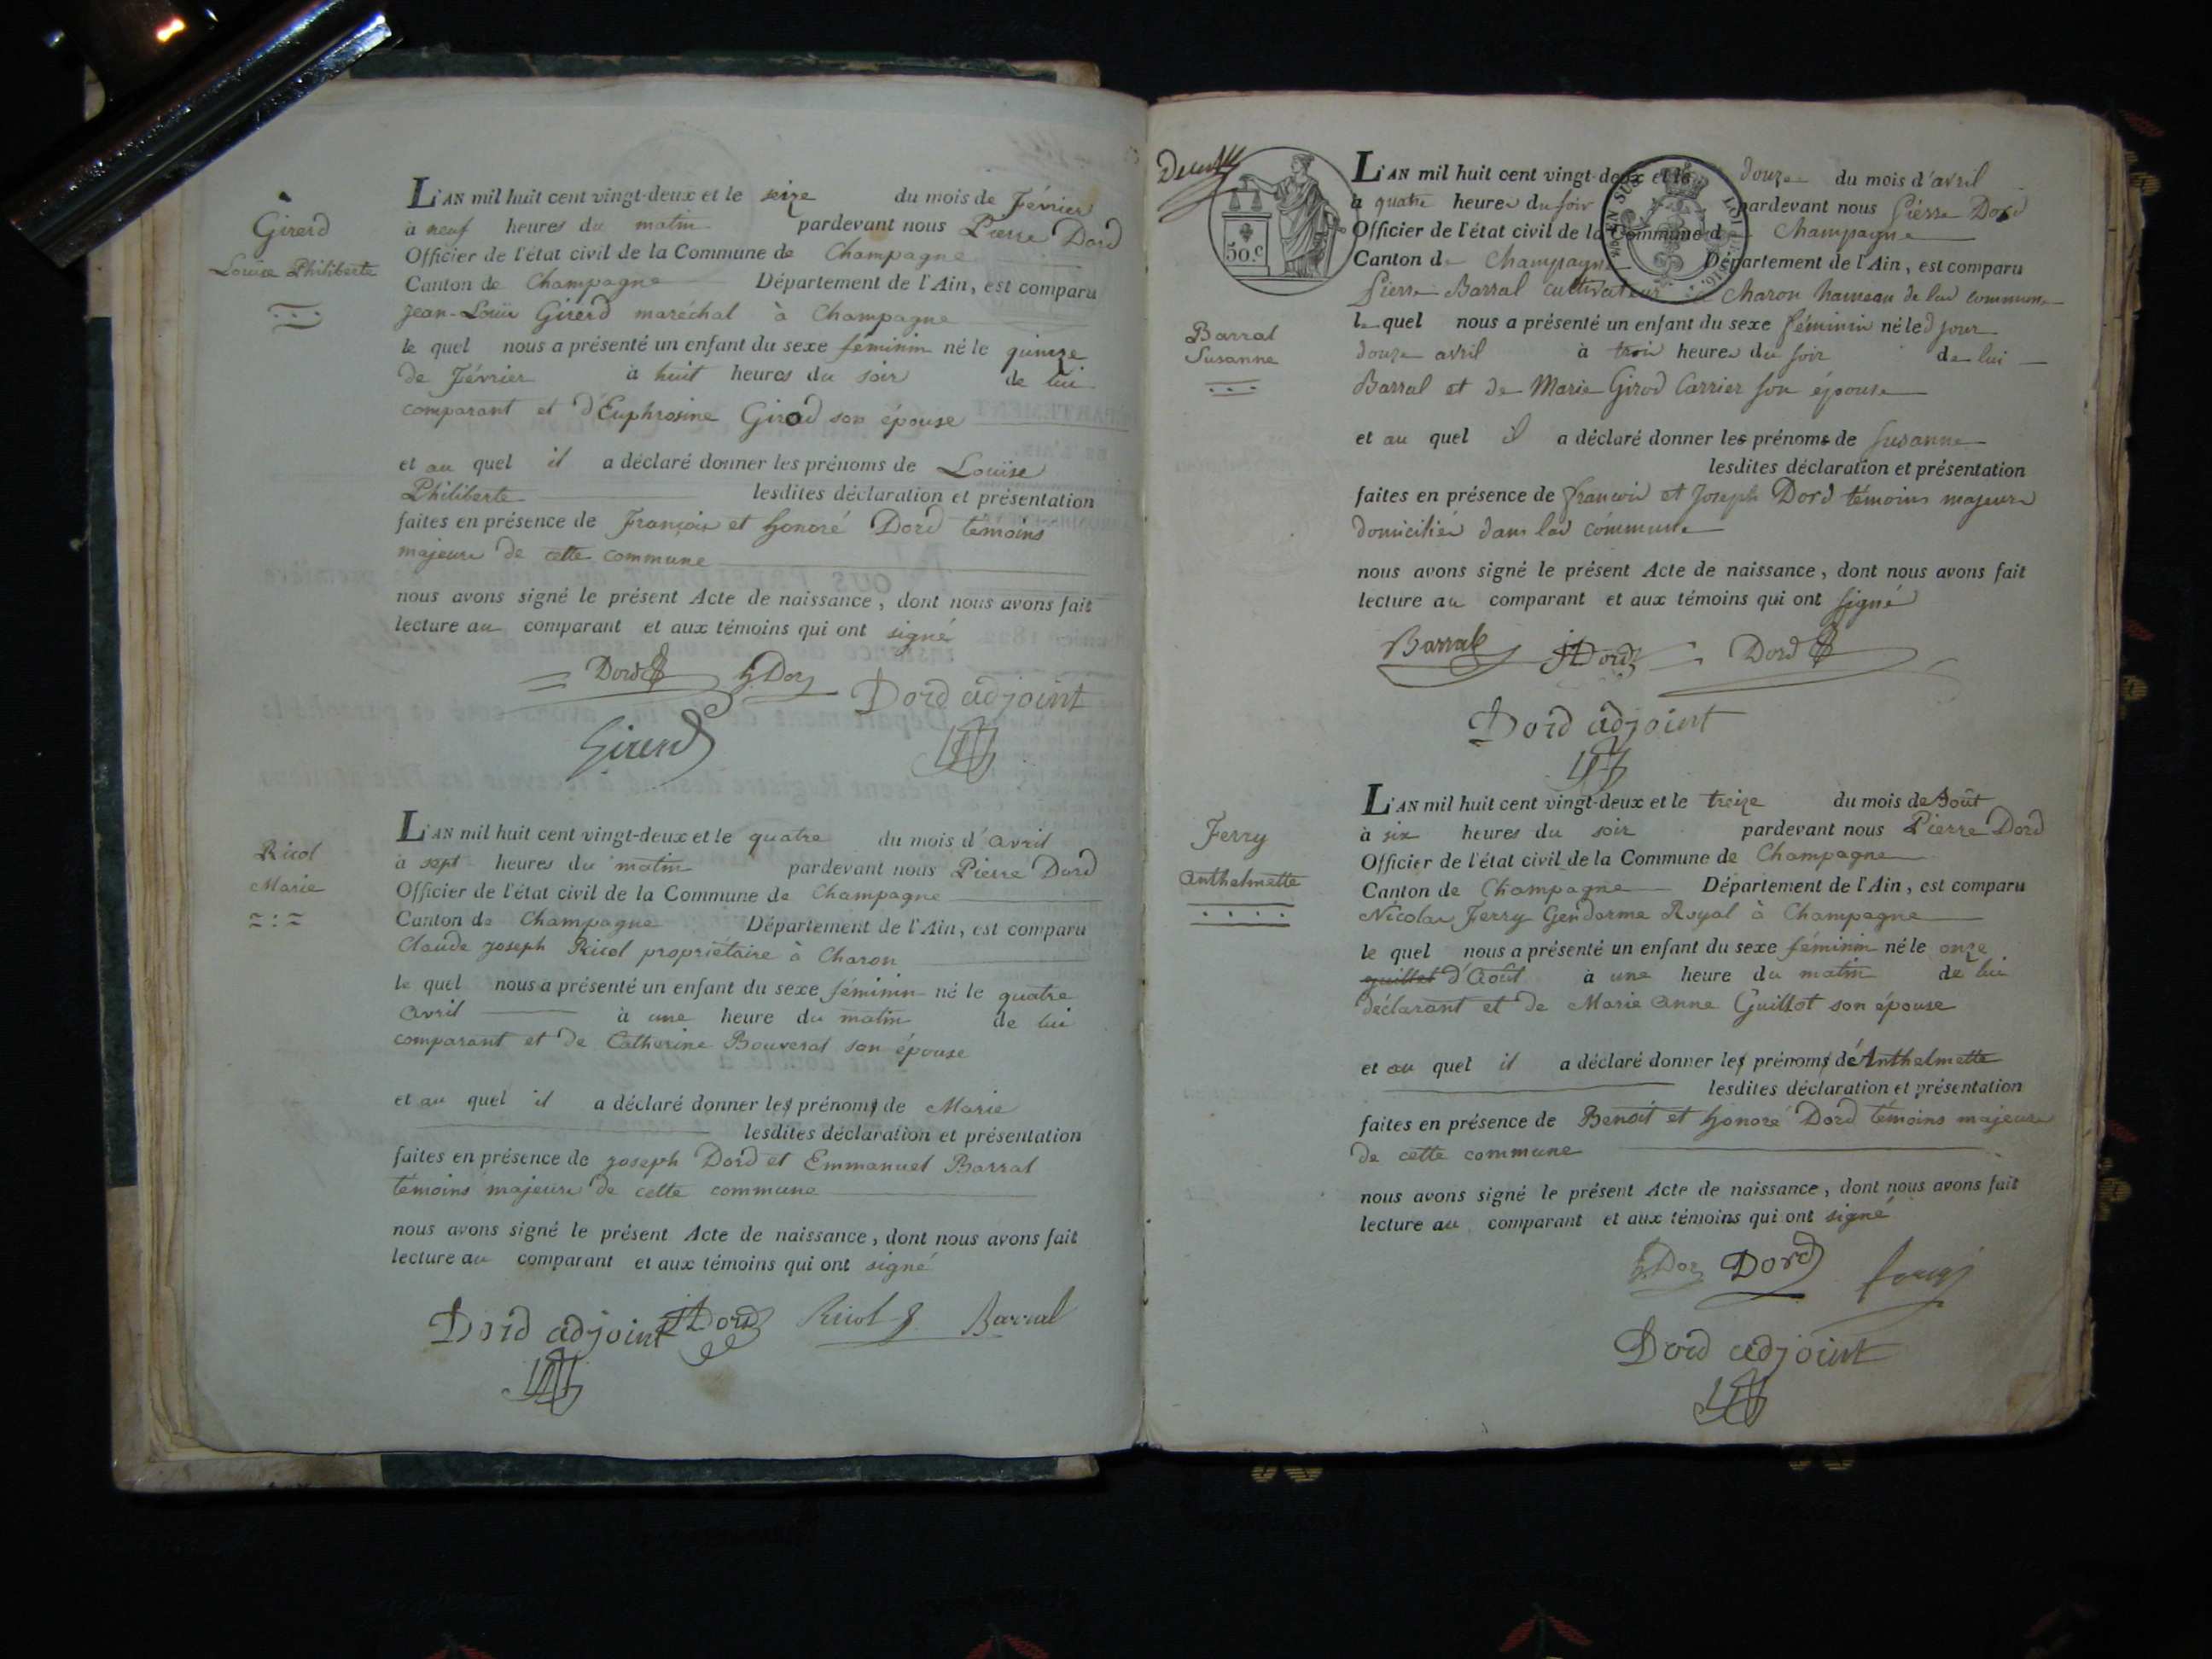 Girerd
Louise Philiberte
L'AN mil huit cent vingt-deux et le seize du mois de Février
à neuf heures du matin pardevant nous Pierre Dord
Officier de l'état civil de la Commune de Champagne
Canton de Champagne Département de l'Ain, est comparu
Jean-Louis Girerd maréchal à Champagne
le quel nous a présenté un enfant du sexe féminin né le quinze
de Février à huit heures du soir de lui
comparant et d'Euphrosine Girod son épouse
et au quel il a déclaré donner les prénoms de Louise
Philiberte lesdites déclaration et présentation
faites en présence de François et honoré Dord témoins
majeurs de cette commune
nous avons signé le présent Acte de naissance, dont nous avons fait
lecture au comparant et aux témoins qui ont signé
Dord h Dord Dord adjoint
Girerd
Ricol
Marie
L'AN mil huit cent vingt-deux et le quatre du mois d'avril
à sept heures du matin pardevant nous Pierre Dord
Officier de l'état civil de la Commune de Champagne
Canton de Champagne Département de l'Ain, est comparu
Claude joseph Ricol propriétaire à Charon
le quel nous a présenté un enfant du sexe féminin né le quatre
avril à une heure du matin de lui
comparant et de Catherine Bouverat son épouse
et au quel il a déclaré donner les prénoms de Marie
lesdites déclaration et présentation
faites en présence de joseph Dord et Emmanuel Barral
témoins majeurs de cette commune
nous avons signé le présent Acte de naissance, dont nous avons fait
lecture au comparant et aux témoins qui ont signé
Dord adjoint Dord Ricol Barral
50 c
LOI
Barral
Susanne
L'AN mil huit cent vingt-deux et le douze du mois d'avril
à quatre heures du soir pardevant nous Pierre Dord
Officier de l'état civil de la Commune de Champagne
Canton de Champagne Département de l'Ain, est comparu
Pierre Barral cultivateur à Charon hameau de lad commune
le quel nous a présenté un enfant du sexe féminin né led jour
douze avril à trois heures du soir de lui
Barral et de Marie Girod Carrier son épouse
et au quel il a déclaré donner les prénoms de Susanne
lesdites déclaration et présentation
faites en présence de françois et Joseph Dord témoins majeurs
domiciliés dans lad commune
nous avons signé le présent Acte de naissance, dont nous avons fait
lecture au comparant et aux témoins qui ont signé
Barral Dord Dord
Dord adjoint
Ferry
Anthelmette
L'AN mil huit cent vingt-deux et le treize du mois de Août
à six heures du soir pardevant nous Pierre Dord
Officier de l'état civil de la Commune de Champagne
Canton de Champagne Département de l'Ain, est comparu
Nicolas Ferry Gendarme Royal à Champagne
le quel nous a présenté un enfant du sexe féminin né le onze
d'Août à une heure du matin de lui
déclarant et de Marie Anne Guillot son épouse
et au quel il a déclaré donner les prénoms d'Anthelmette
lesdites déclaration et présentation
faites en présence de Benoit et honoré Dord témoins majeurs
de cette commune
nous avons signé le présent Acte de naissance, dont nous avons fait
lecture au comparant et aux témoins qui ont signé
h Dord Dord
Dord adjoint